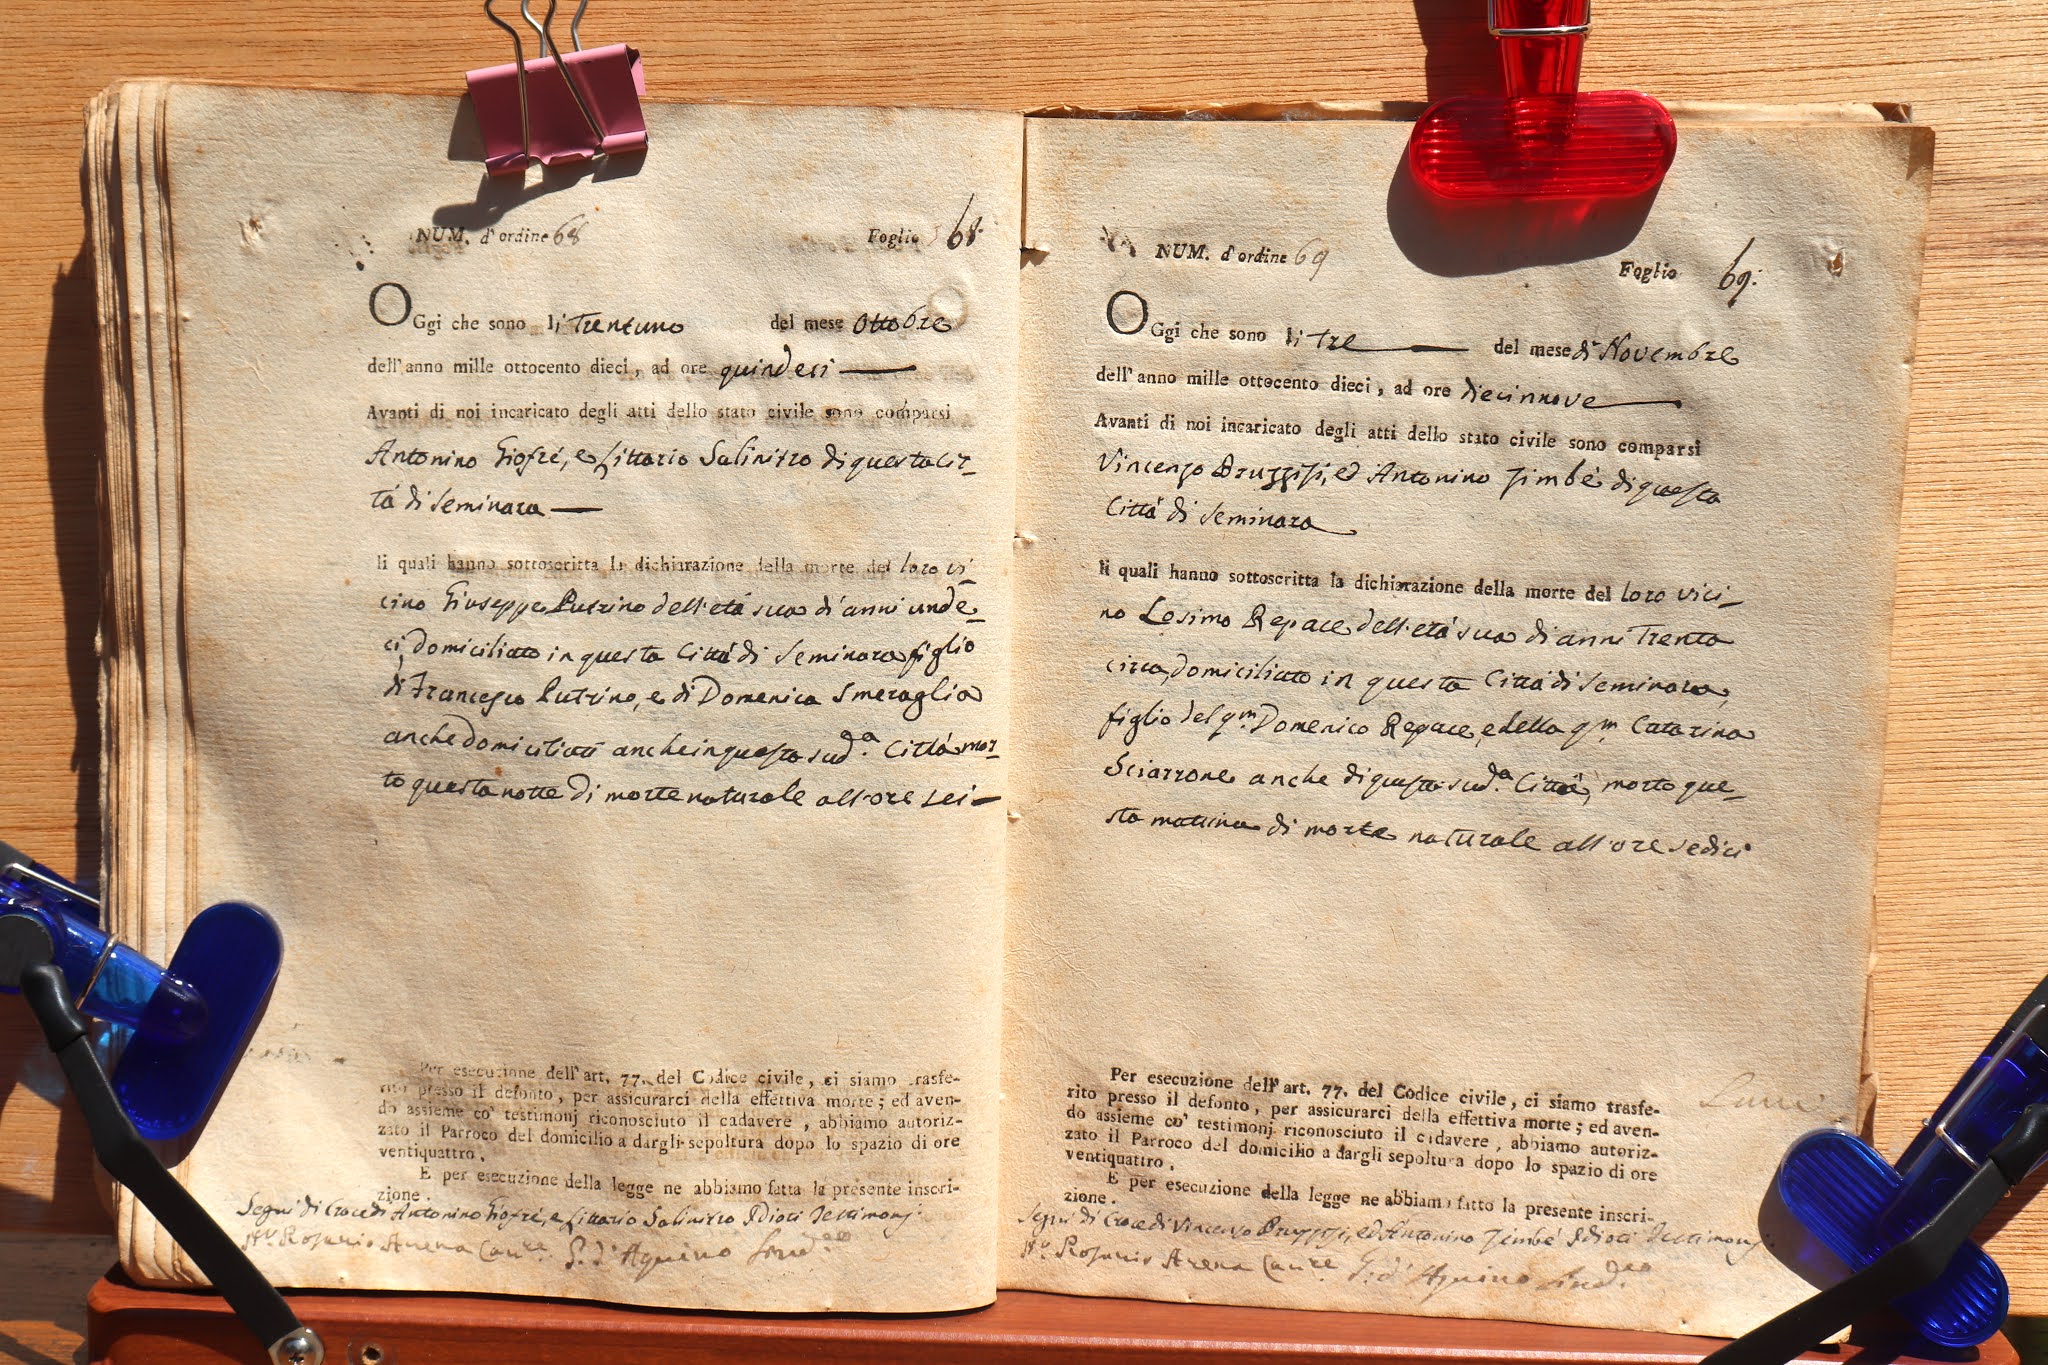 NUM. d'ordine 68
Foglio 68.
OGgi che sono li Trentuno del mese Ottobre
dell'anno mille ottocento dieci, ad ore quindeci
Avanti di noi incaricato degli atti dello stato civile sono comparsi
Antonino Giofré, e Littorio Salinitro di questa Cit-
tá di Seminara
li quali hanno sottoscritta la dichiarazione della morte del loro vi-
cino Giuseppe Putrino dell'etá sua di anni unde-
ci, domiciliato in questa Cittá di Seminara figlio
di Francesco Putrino, e di Domenica Smeraglia
anche domiciliati anche in questa sud.a Cittá mor-
to questa notte di morte naturale all'ore sei
Per esecuzione dell'art. 77. del Codice civile, ci siamo trasfe-
rito presso il defonto, per assicurarci della effettiva morte; ed aven-
do assieme co' testimonj riconosciuto il cadavere, abbiamo autoriz-
zato il Parroco del domicilio a dargli sepoltura dopo lo spazio di ore
ventiquattro.
E per esecuzione della legge ne abbiamo fatta la presente inscri-
zione.
Segni di Croce di Antonino Giofré, e Littorio Salinitro Idioti Testimonj
Rosario Arena Canc.re G. d'Aquino Sind.co
NUM. d'ordine 69
Foglio 69.
OGgi che sono li Tre del mese di Novembre
dell'anno mille ottocento dieci, ad ore diecinnove
Avanti di noi incaricato degli atti dello stato civile sono comparsi
Vincenzo Bruzzisi, ed Antonino Jimbé di questa
Cittá di Seminara
li quali hanno sottoscritta la dichiarazione della morte del loro vici-
no Lesimo Repace dell'etá sua di anni Trenta
circa, domiciliato in questa Cittá di Seminara,
figlio del qm. Domenico Repace, e della qm. Catarina
Sciarrone anche di questa sud.a Cittá, morto que-
sta mattina di morte naturale all'ore sedici
Per esecuzione dell'art. 77. del Codice civile, ci siamo trasfe-
rito presso il defonto, per assicurarci della effettiva morte; ed aven-
do assieme co' testimonj riconosciuto il cadavere, abbiamo autoriz-
zato il Parroco del domicilio a dargli sepoltura dopo lo spazio di ore
ventiquattro.
E per esecuzione della legge ne abbiamo fatto la presente inscri-
zione.
Segni di Croce di Vincenzo Bruzzisi, ed Antonino Jimbé Idioti Testimonj
Rosario Arena Canc.re G. d'Aquino Sind.co